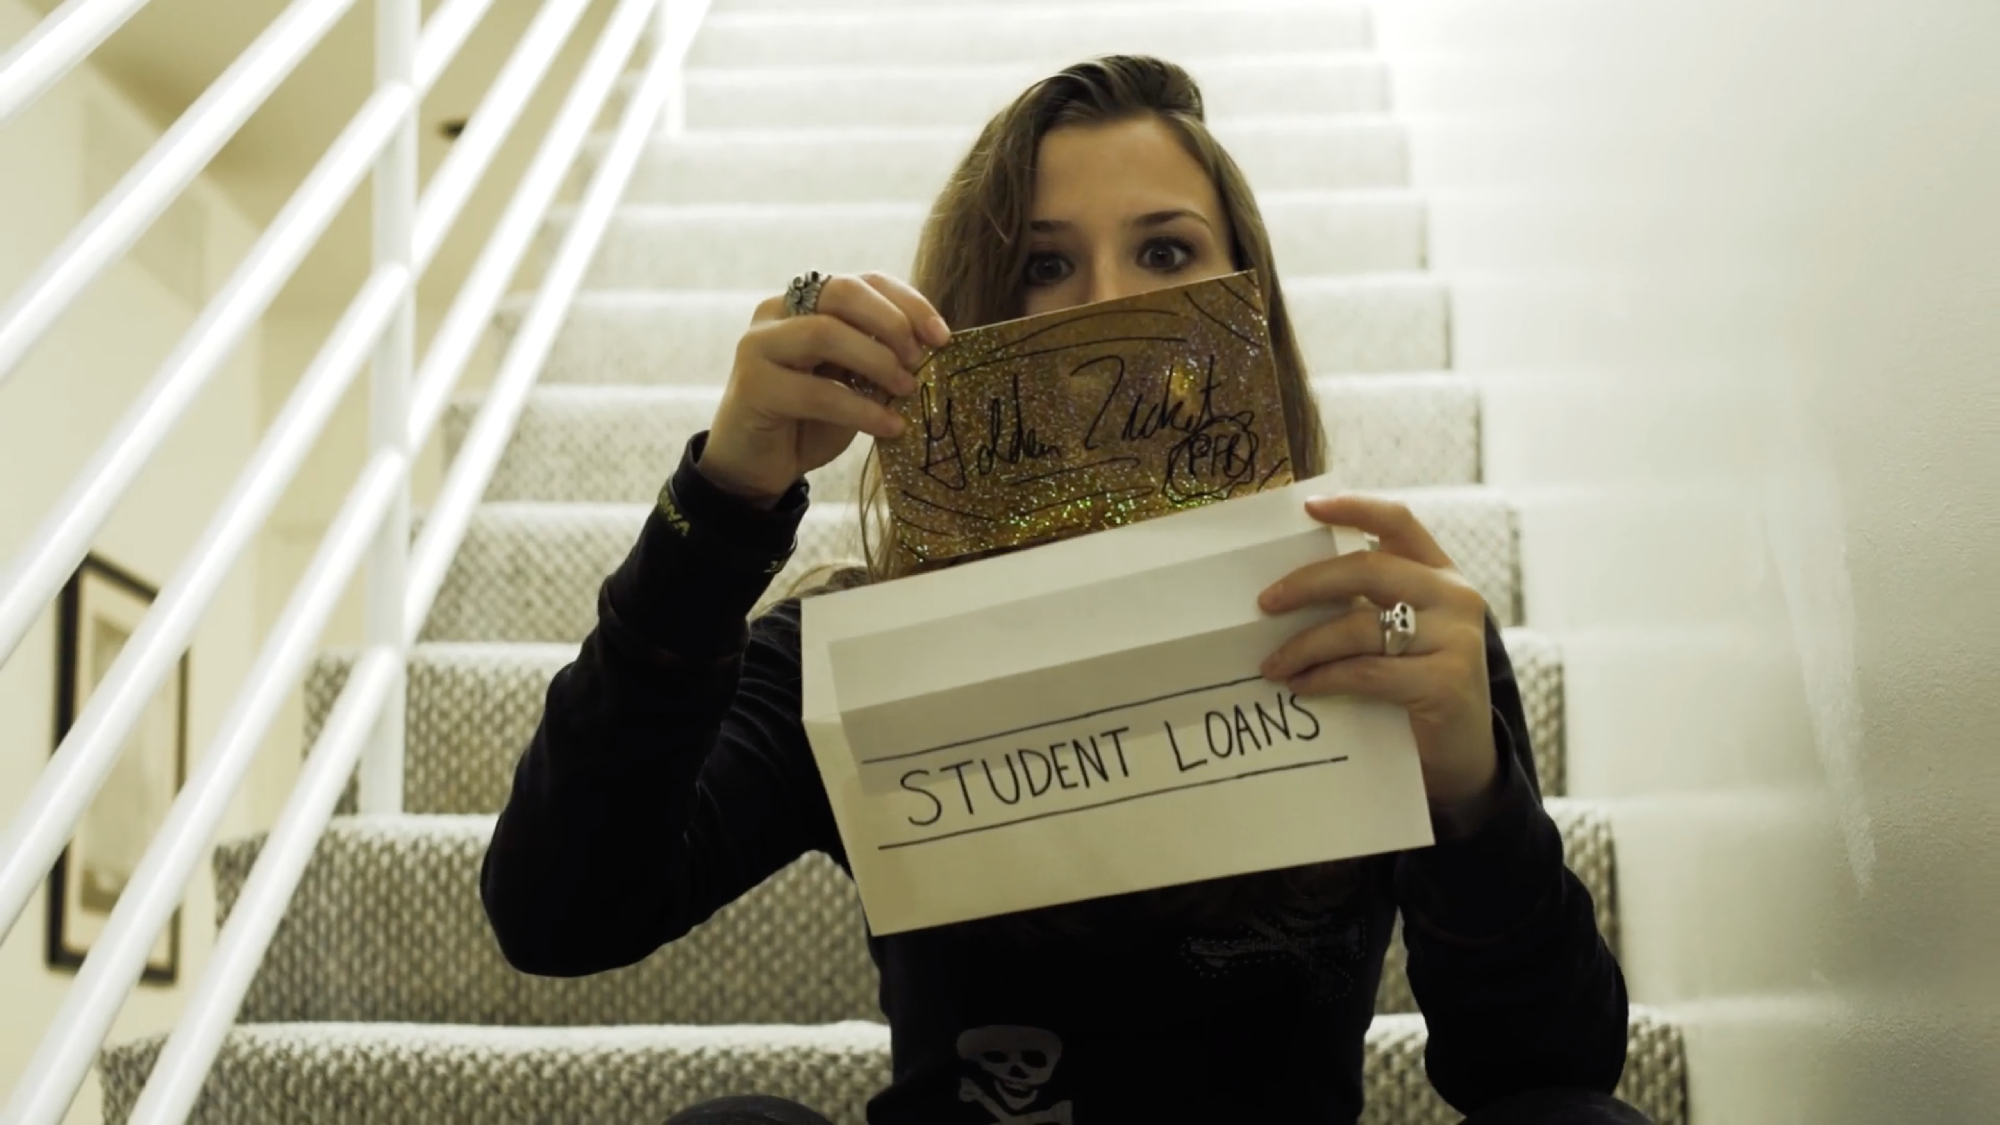 Golden Ticket
PFB
STUDENT LOANS